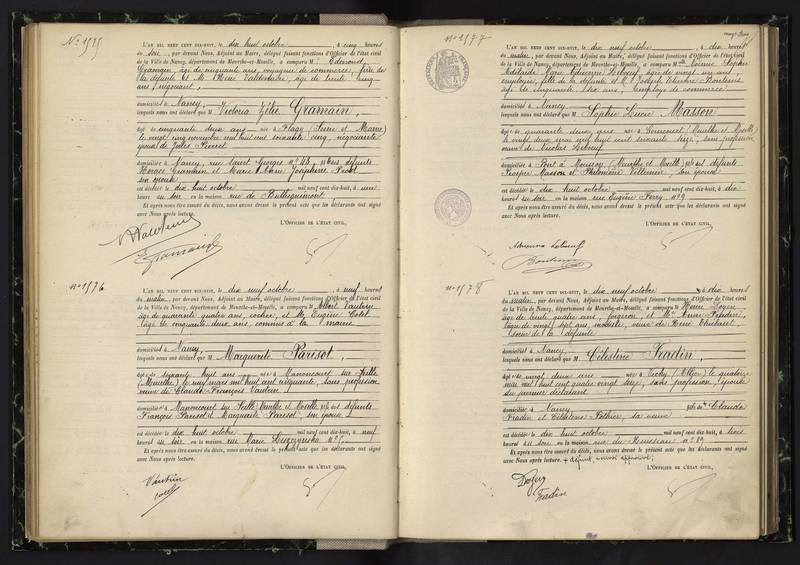 N° 1575
L'AN MIL NEUF CENT DIX-HUIT, le dix huit octobre, à cinq heures
du soir, par devant Nous, Adjoint au Maire, délégué faisant fonctions d'Officier de l'état civil
de la Ville de Nancy, département de Meurthe-et-Moselle, a comparu M. Edmond
Gramain, âgé de cinquante ans, voyageur de commerce, frère de
la défunte et
ans, négociant,
domiciliés à Nancy,
lesquels nous ont déclaré que Mme Victoria Zélie Gramain,
âgée de cinquante deux ans née à Flagy (Seine et Marne)
le vingt cinq novembre mil huit cent soixante cinq, négociante
épouse de Jules Pierret
domiciliée à Nancy, rue Saint Georges n° 48, des défunts
Horace Gramain et Marie Anne Joséphine
son épouse
est décédée le dix huit octobre mil neuf cent dix-huit, à une
heure du soir en la maison rue de Buthégnémont,
Et après nous être assuré du décès, nous avons dressé le présent acte que les déclarants ont signé
avec Nous après lecture.
L'OFFICIER DE L'ÉTAT CIVIL,
n° 1576
L'AN MIL NEUF CENT DIX-HUIT, le dix neuf octobre, à neuf heures
du matin, par devant Nous, Adjoint au Maire, délégué faisant fonctions d'Officier de l'état civil
de la Ville de Nancy, département de Meurthe-et-Moselle, a comparu M. Albert Vautrin
âgé de quarante quatre ans, cocher, et M. Eugène Colet
âgé de cinquante deux ans, commis à la mairie
domiciliés à Nancy,
lesquels nous ont déclaré que Marguerite Parisot,
âgée de soixante huit ans née à Manoncourt sur Seille
(Meurthe) le neuf mars mil huit cent cinquante, sans profession
veuve de Claude François Vautrin
domiciliée à Manoncourt sur Seille Meurthe et Moselle des défunts
François Parisot et Marguerite Parisot, son épouse
est décédée le dix huit octobre mil neuf cent dix-huit, à neuf
heures du soir en la maison rue Marie Leczynska n°
Et après nous être assuré du décès, nous avons dressé le présent acte que les déclarants ont signé
avec Nous après lecture.
L'OFFICIER DE L'ÉTAT CIVIL,
Vautrin
Colet
n° 1577
L'AN MIL NEUF CENT DIX-HUIT, le dix neuf octobre, à dix heures
du matin, par devant Nous, Adjoint au Maire, délégué faisant fonctions d'Officier de l'état civil
de la Ville de Nancy, département de Meurthe-et-Moselle, a comparu Mlle Sophie
Adélaïde Leboeuf âgée de vingt un ans,
employée, fille de la défunte et M. Joseph Bontems
âgé de cinquante six ans, employé de commerce
domiciliés à Nancy
lesquels nous ont déclaré que M Sophie Lucie Masson
âgée de quarante deux ans née à (Meurthe et Moselle)
le vingt deux mai mil huit cent soixante seize, sans profession
veuve de Nicolas Leboeuf
domiciliée à Pont à Mousson (Meurthe et Moselle) des défunts
Prosper Masson et Philomène Villemin, son épouse
est décédée le dix huit octobre mil neuf cent dix-huit, à dix
heures du soir en la maison rue Eugène Ferry n° 9
Et après nous être assuré du décès, nous avons dressé le présent acte que les déclarants ont signé
avec Nous après lecture.
L'OFFICIER DE L'ÉTAT CIVIL,
Adrienne Leboeuf
Bontems
n° 1578
L'AN MIL NEUF CENT DIX-HUIT, le dix neuf octobre, à dix heures
du matin, par devant Nous, Adjoint au Maire, délégué faisant fonctions d'Officier de l'état civil
de la Ville de Nancy, département de Meurthe-et-Moselle, a comparu M. Henri
âgé de trente quatre ans, forgeron, et Mme Anne Fradin
âgée de vingt sept ans, modiste, veuve de René Thiébaut,
soeur de la défunte
domiciliés à Nancy
lesquels nous ont déclaré que Célestine Fradin,
âgée de vingt deux ans née à Vichy (Allier) le quatorze
mai mil huit cent quatre vingt seize, sans profession, épouse
du premier déclarant
domiciliée à Nancy fille de Claude
Fradin et Célestine Pothier sa veuve
est décédée le dix huit octobre mil neuf cent dix-huit, à trois
heures du soir en la maison rue n° 89
Et après nous être assuré du décès, nous avons dressé le présent acte que les déclarants ont signé
avec Nous après lecture.
L'OFFICIER DE L'ÉTAT CIVIL,
Fradin